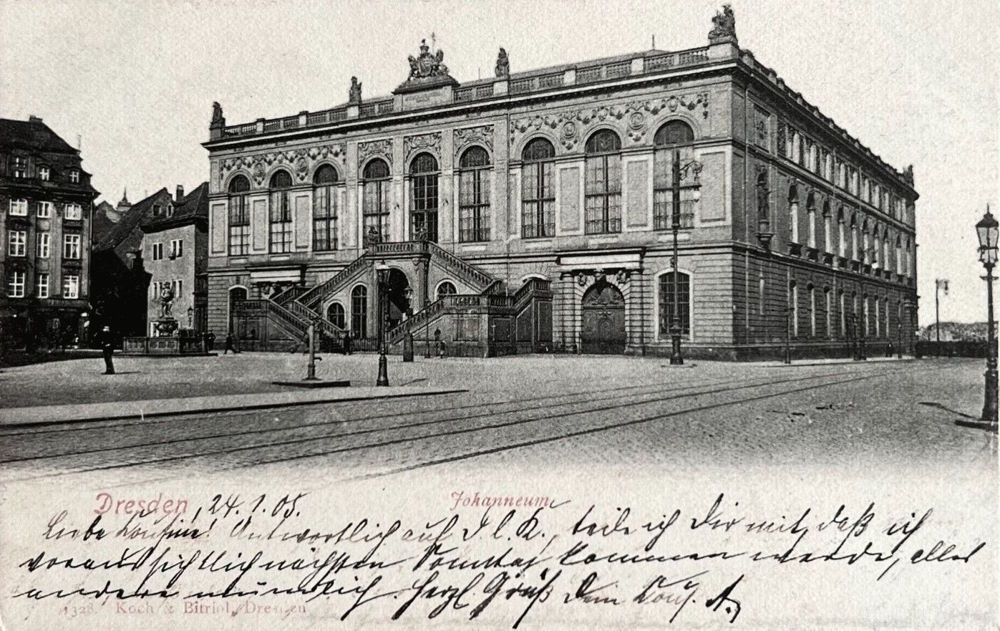 Dresden, 24.1.05. Johanneum
Liebe Cousine! Antwortlich auf D. l. K., teile ich Dir mit, daß ich
voraussichtlich nächsten Sonntag kommen werde, alles
andere mündlich. Herzl. Gruß Dein Cous. A.
1328. Koch & Bitriol, Dresden